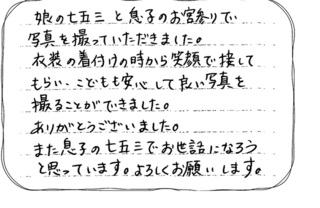 娘の七五三と息子のお宮参りで、
写真を撮っていただきました。
衣装の着付けの時から笑顔で接して
もらい、こどもも安心して良い写真を
撮ることができました。
ありがとうございました。
また息子の七五三でお世話になろう
と思っています。よろしくお願いします。